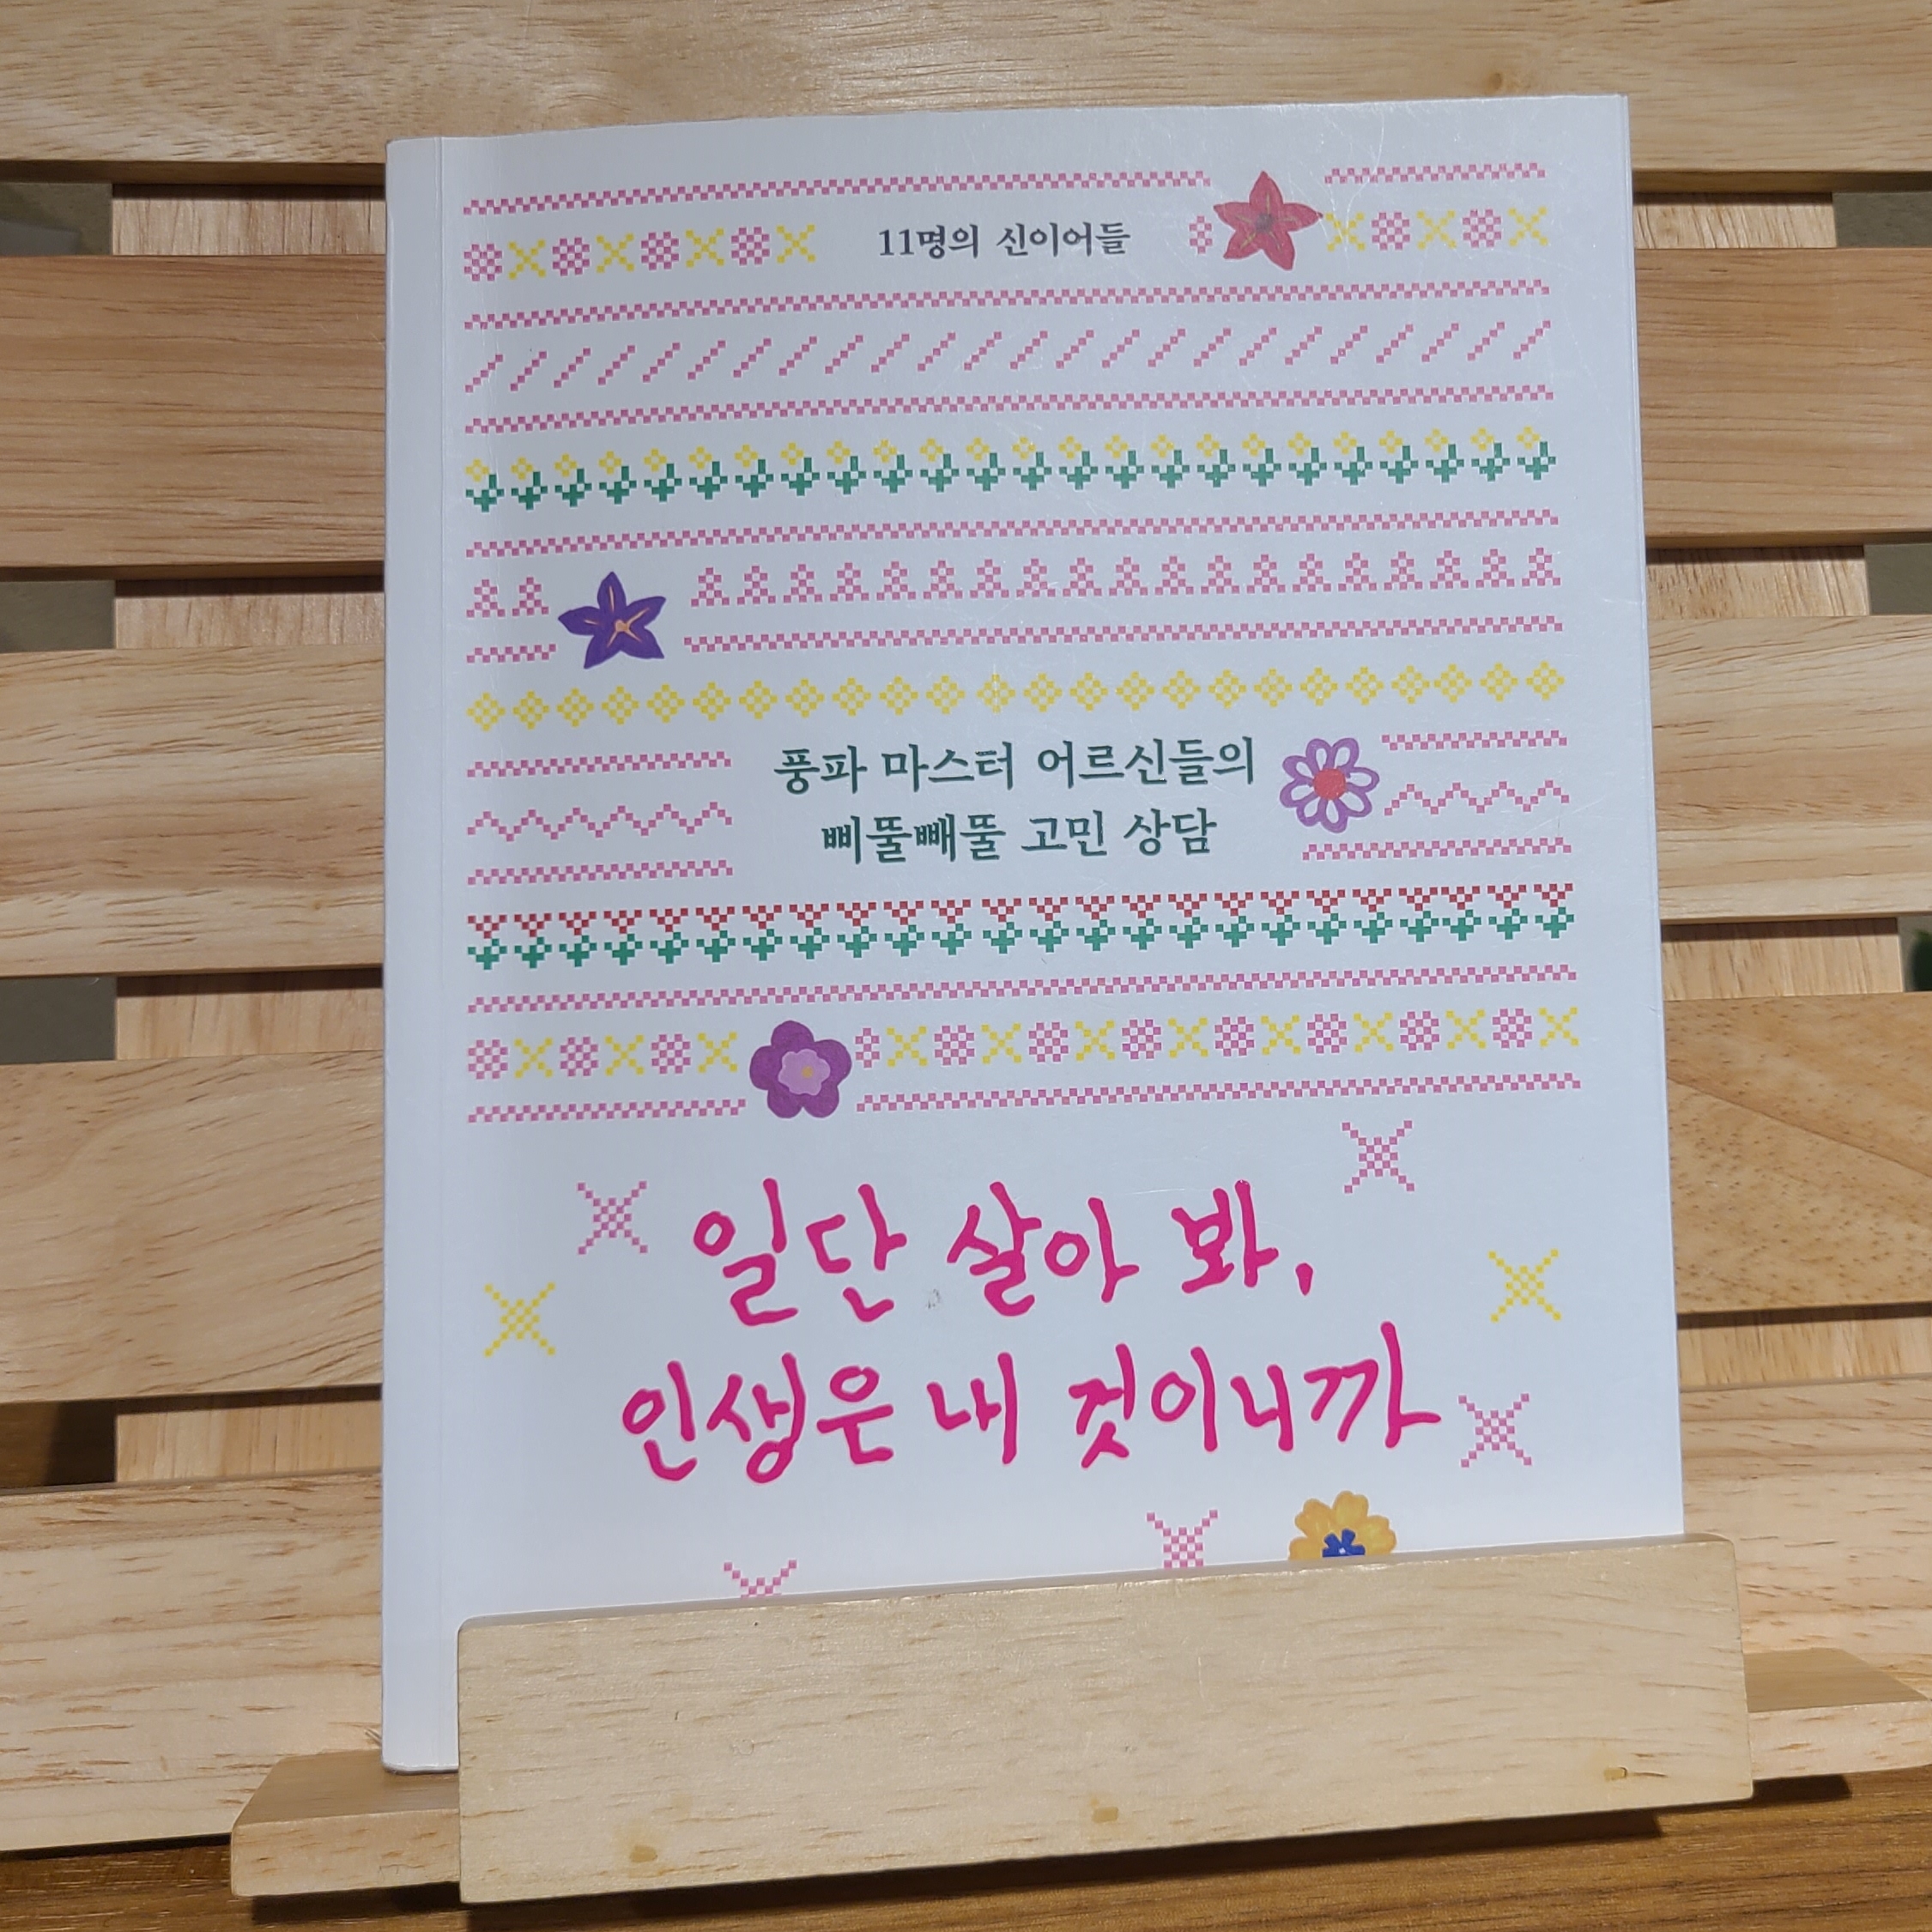 11명의 신이어들
풍파 마스터 어르신들의
삐뚤빼뚤 고민 상담
일단 살아 봐,
인생은 내 것이니까